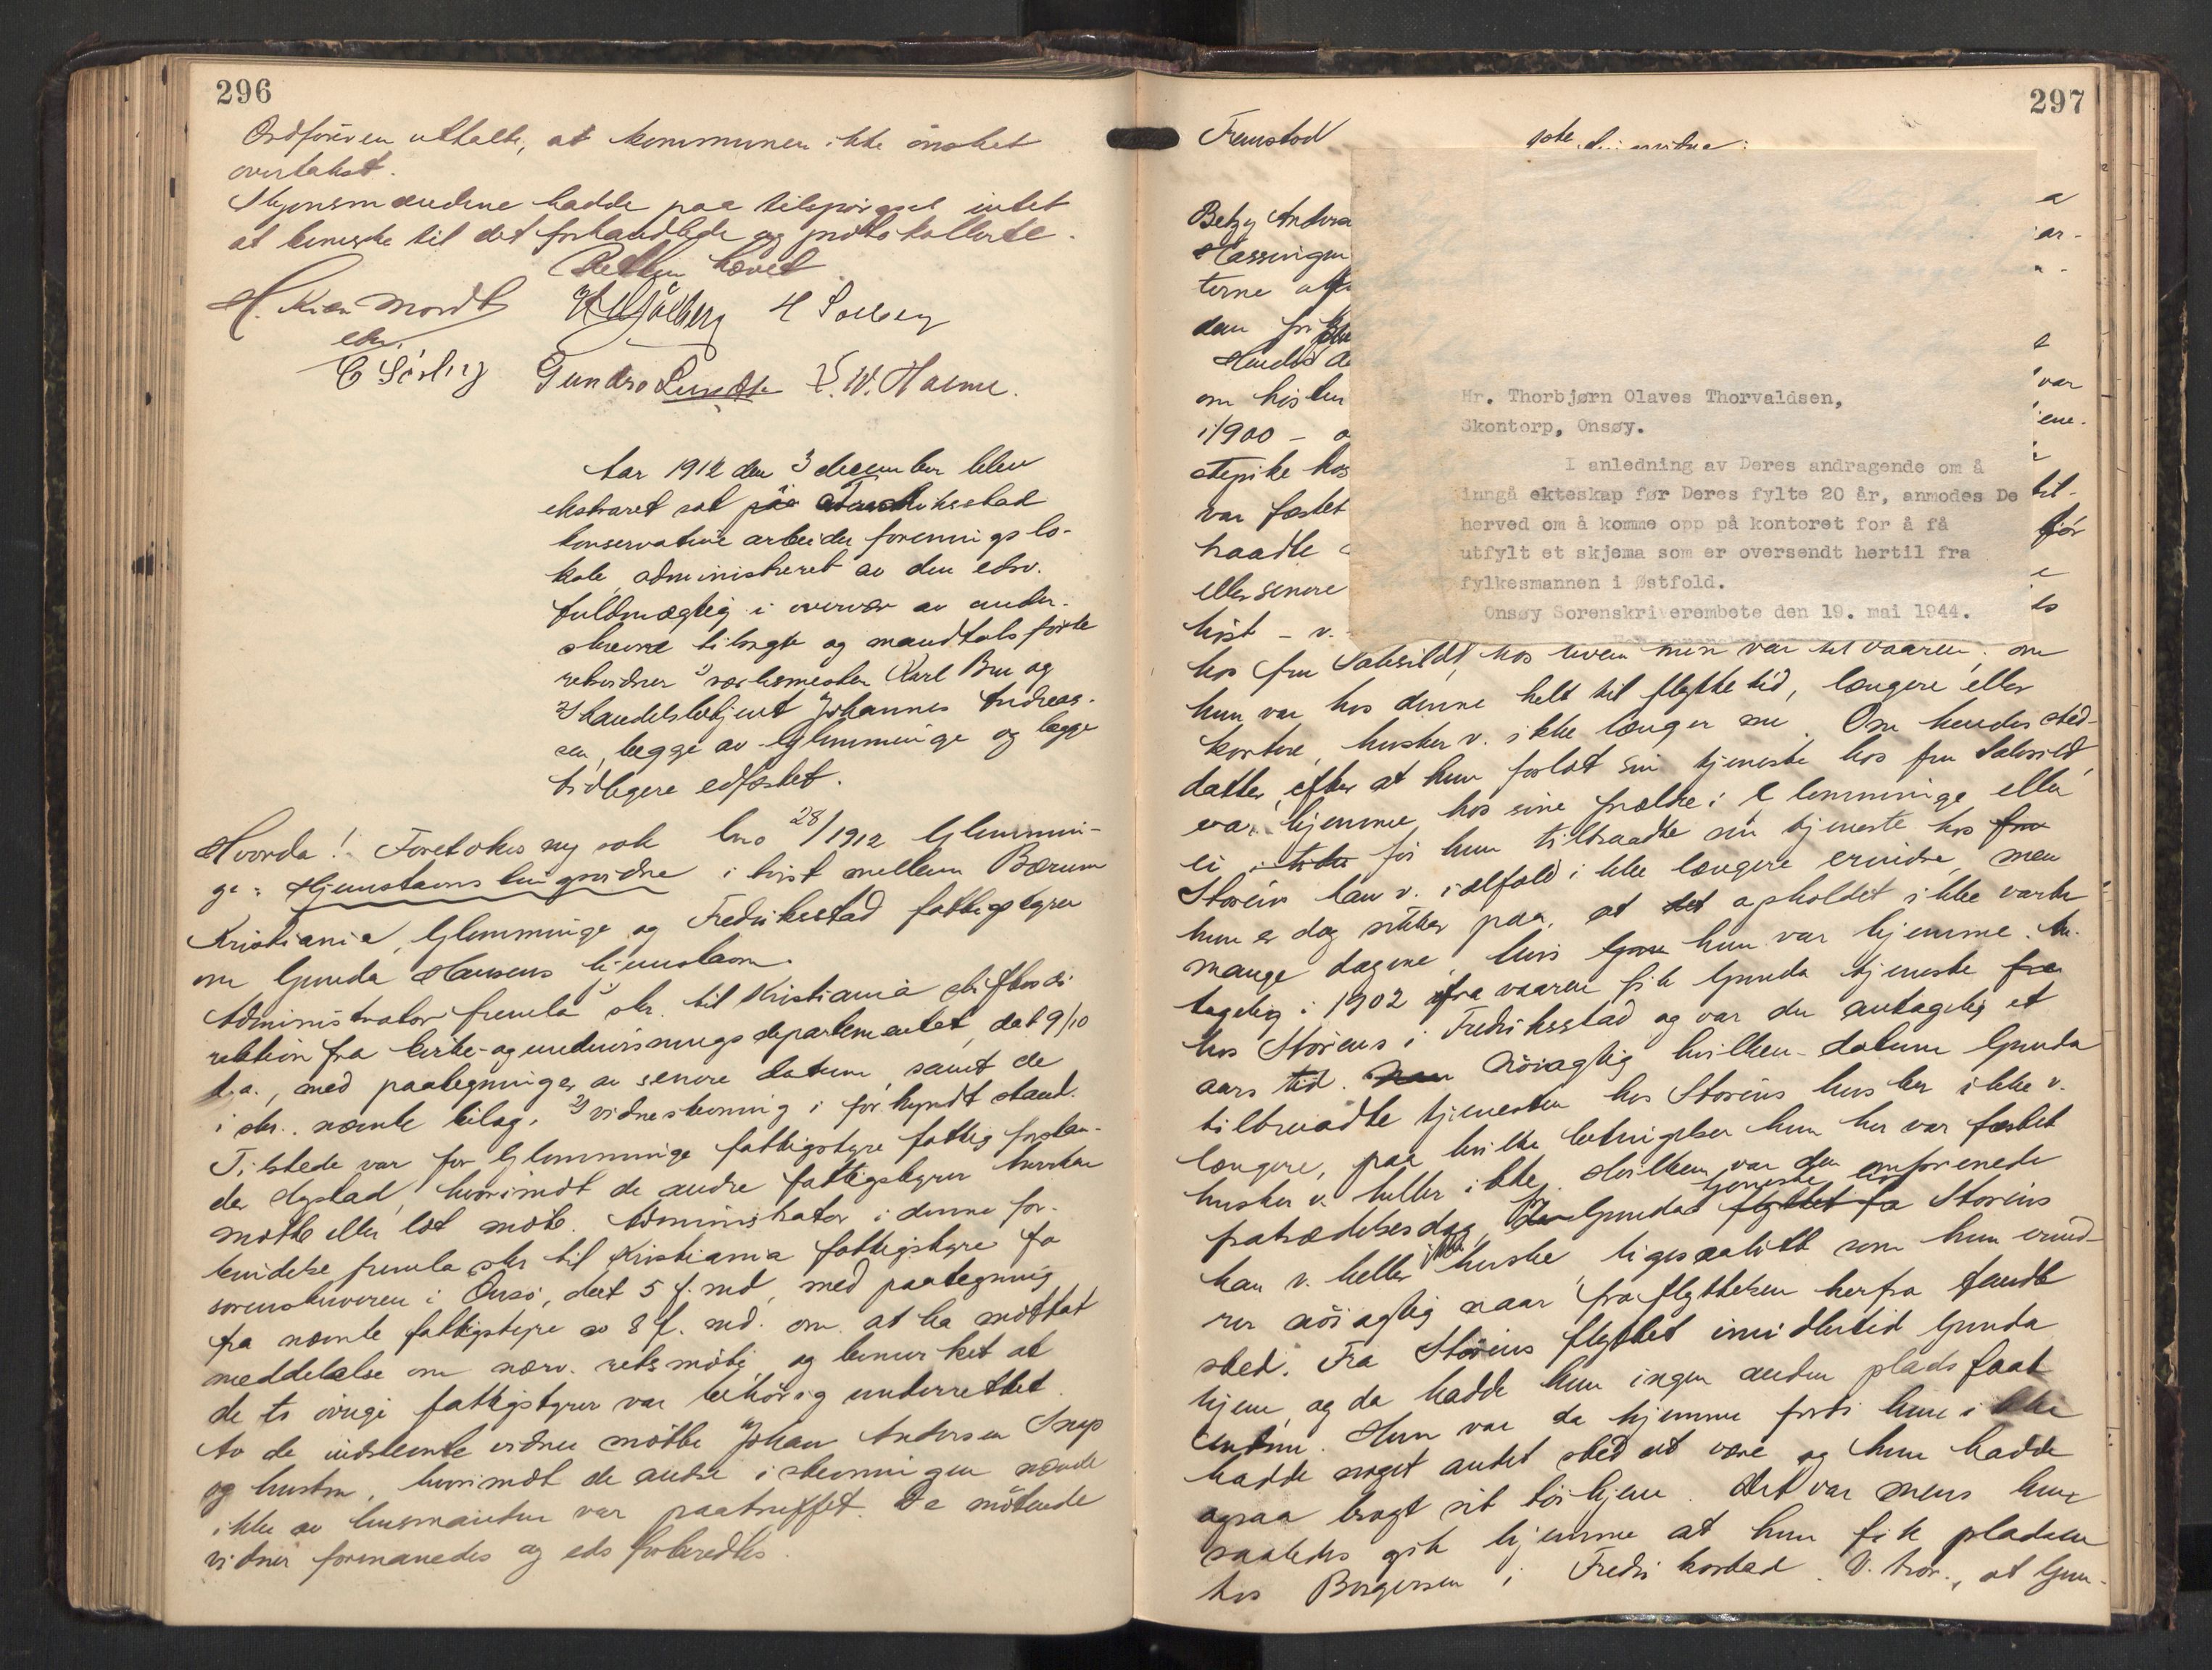 296
Ordføreren uttalte, at kommunen ikke ønsket
overtakst.
Skjønsmændene hadde paa tilspørgsel intet
at bemerke til det forhandlede og protokollerte.
Retten hævet
H. Kiær Mordt
H Solberg
cst.
Gundro Lunde
Aar 1912 den 3 december blev
ekstraret sat paa Fredriksstad
konservative arbeiderforenings lo-
kale administreret av den edsv.
fuldmægtig i overvær av under-
skrevne tilsagte og mandtalsførte
retsvidner 1) verksmester Karl Bru og
2) handelsbetjent Johannes Andreas-
sen, begge av Glemminge og begge
tidligere edfæstet.
Hvorda! Foretokes ny sak Lno 28/1912 Glemmin-
ge: Hjemstavnsbegjørelse i tvist mellem Bærum
Kristiania, Glemminge og Fredriksstad fattigstyrer
om Gunda Hansens hjemstavn.
Administrator fremla 1) skr. til Kristiania stiftsdi-
rektion fra kirke- og undervisningsdepartementet, dat 9/10
d.a., med paategninger av senere datum, samt de
i skr. nævnte bilag, 2) vidnestevning i forkyndt stand.
Tilstede var for Glemminge fattigstyre fattigforstan-
der Nystad, hvorimot de andre fattigstyrer hverken
møtte eller lot møte. Administrator i denne for-
bindelse fremla skr til Kristiania fattigstyre fra
sorenskriveren i Onsø, dat 5 f. md, med paategning
fra nævnte fattigstyre av 8 f. md. om at ha mottat
meddelelse om nærv. retsmøte og bemerket at
de to øvrige fattigstyrer var behørig underrettet.
Av de indstevnte vidner møtte Johan Andersen Snip
og hustru, hvorimot de andre i stevningen nævnte
ikke av husmanden var paatruffet. De møtende
vidner formanedes og eds forberedtes.
297
Fremstod
Betzy Andrea
Hassingen
terne
den
Hendes
om høsten
i 1900 –
stepike hos
var fæstet
haadde
eller senere
høst – v.
Hr. Thorbjørn Olaves Thorvaldsen,
Skontorp, Onsøy.
I anledning av Deres andragende om å
inngå ekteskap før Deres fylte 20 år, anmodes De
herved om å komme opp på kontoret for å få
utfylt et skjema som er oversendt hertil fra
fylkesmannen i Østfold.
Onsøy Sorenskriverembete den 19. mai 1944.
a
ar-
var
ene.
til-
før
es
hos fru Sahlsild, hos hvem hun var til vaaren; om
hun var hos denne helt til flyttetid, længere eller
kortere, husker v. ikke længer nu. Om hendes sted-
datter, efter at hun forlot sin tjeneste hos fru Sahlsild,
var hjemme hos sine forældre i Glemminge eller
ei i tiden før hun tiltraadte sin tjeneste hos fru
Storeim kan v. ialfald ikke længere erindre, men
hun er dog sikker paa, at det opholdet ikke varte
mange dagene, hvis Gun hun var hjemme. An-
tagelig i 1902 fra vaaren fik Gunda tjeneste fra
hos Storeims i Fredriksstad og var der antagelig et
aars tid. Naar Nøiagtig hvilken datum Gunda
tiltraadte tjenesten hos Storeims husker ikke v.
længere, paa hvilke betingelser hun her var fæstet
husker v. heller ikke. Hvilken var den omforenede
fratrædelsesdag, da Gundas flyttet fra tjeneste Storeims
kan v. heller ikke huske, ligesaalitt som hun erind-
rer nøiagtig naar fraflyttelsen herfra fandt
sted. Fra Storeims flyttet imidlertid Gunda
hjem, og da hadde hun ingen anden plads faat
endnu. Hun var da hjemme fordi hun ikke
hadde noget andet sted at være og hun hadde
ogsaa bragt sit tøi hjem. Det var mens hun
saaledes gik hjemme at hun fik pladsen
hos Borgersen i Fredriksstad. V. tror, at Gun-